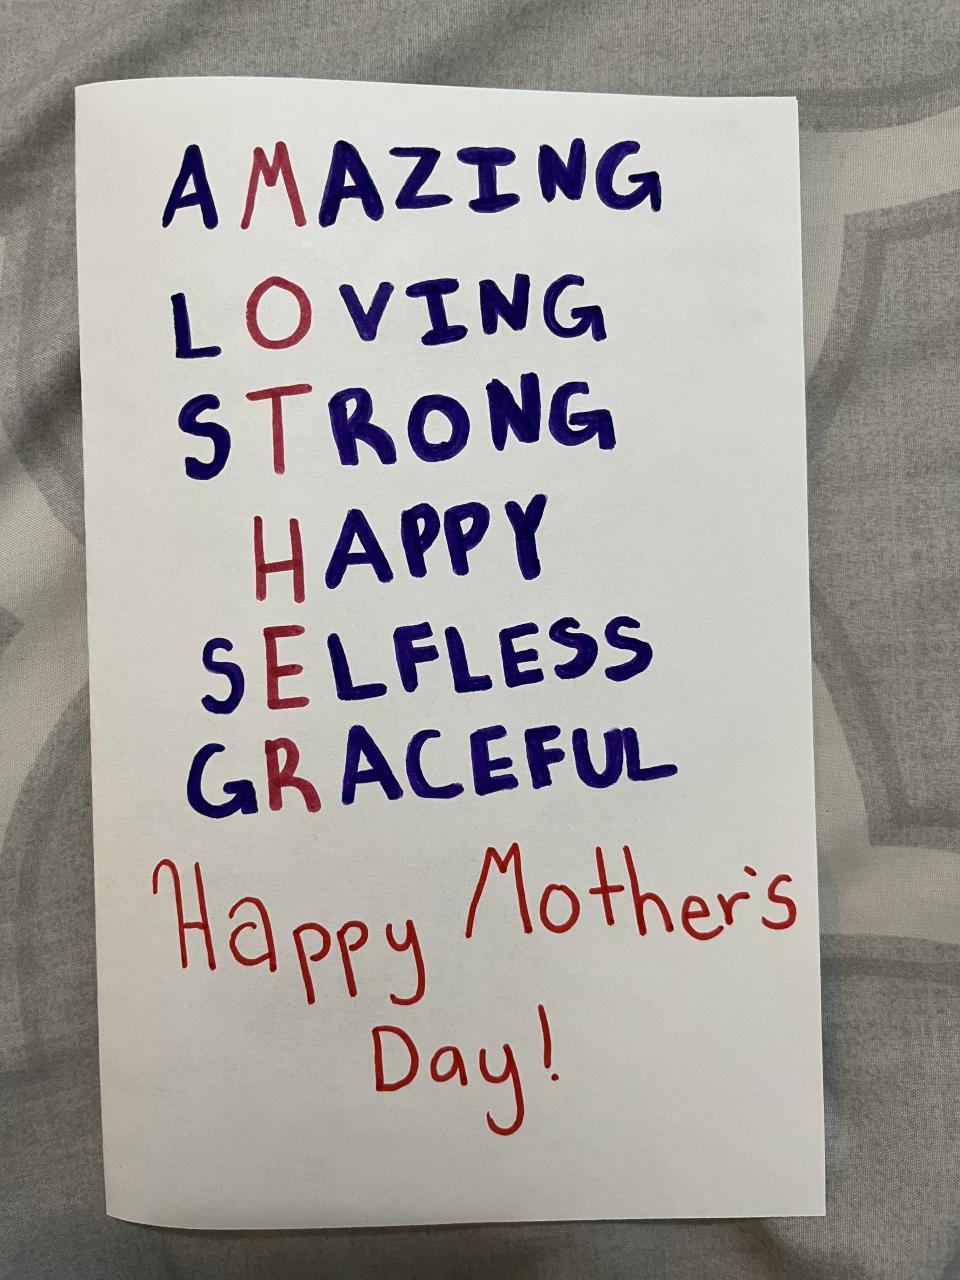 AMAZING
LOVING
STRONG
HAPPY
SELFLESS
GRACEFUL
Happy Mother's
Day!